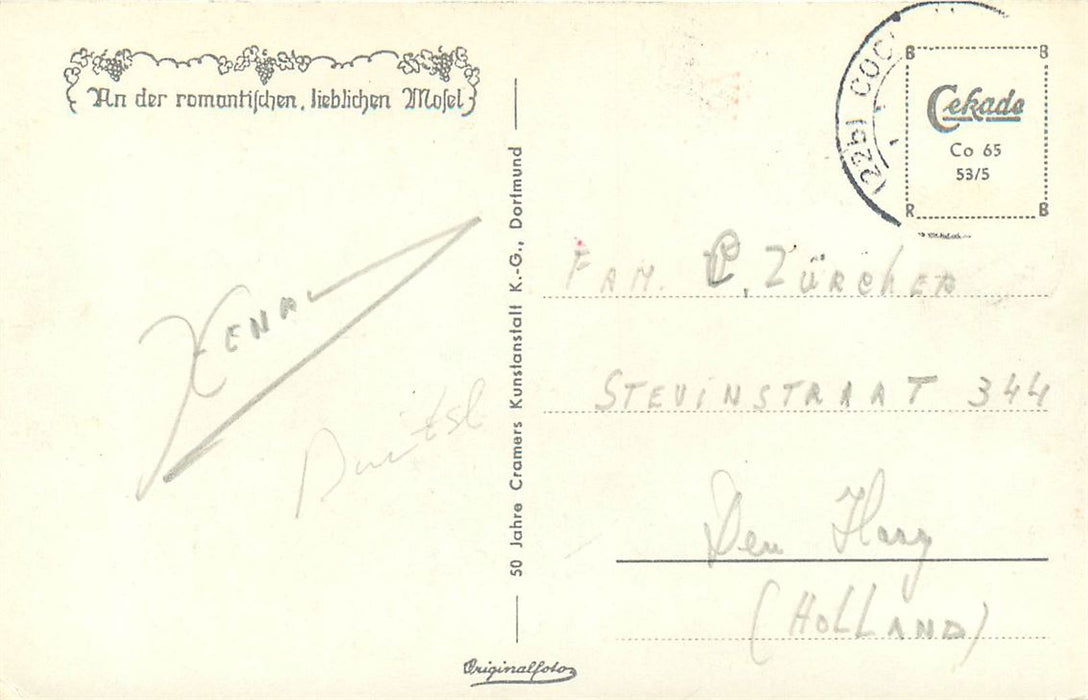 An der romantischen, lieblichen Mosel
(22b) COC
B B
Cekade
Co 65
53/5
R B
50 Jahre Cramers Kunstanstalt K.-G., Dortmund
FAM. P. Zürcher
STEVINSTRAAT 344
Den Haag
(HOLLAND)
Originalfoto